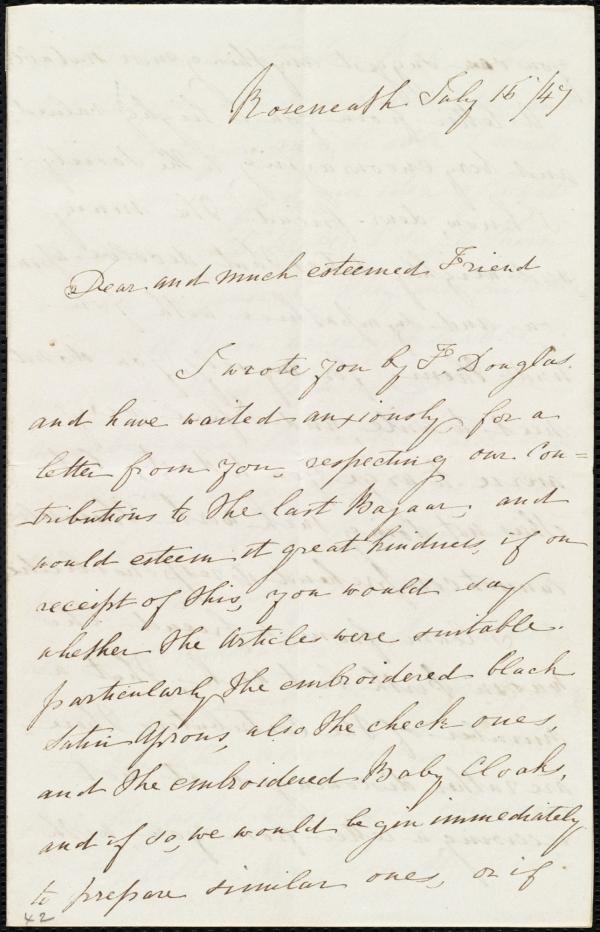 Roseneath July 16/47
Dear and much esteemed Friend
I wrote you by F. Douglas
and have waited anxiously for a
letter from you, respecting our Con=
tributions to the last Bazaar, and
would esteem it great kindness, if on
receipt of this, you would say
whether the Article were suitable.
particularly the embroidered black
Satin Aprons, also the check ones,
and the embroidered Baby Cloaks,
and if so, we would begin immediately
to prepare similar ones, or if
42